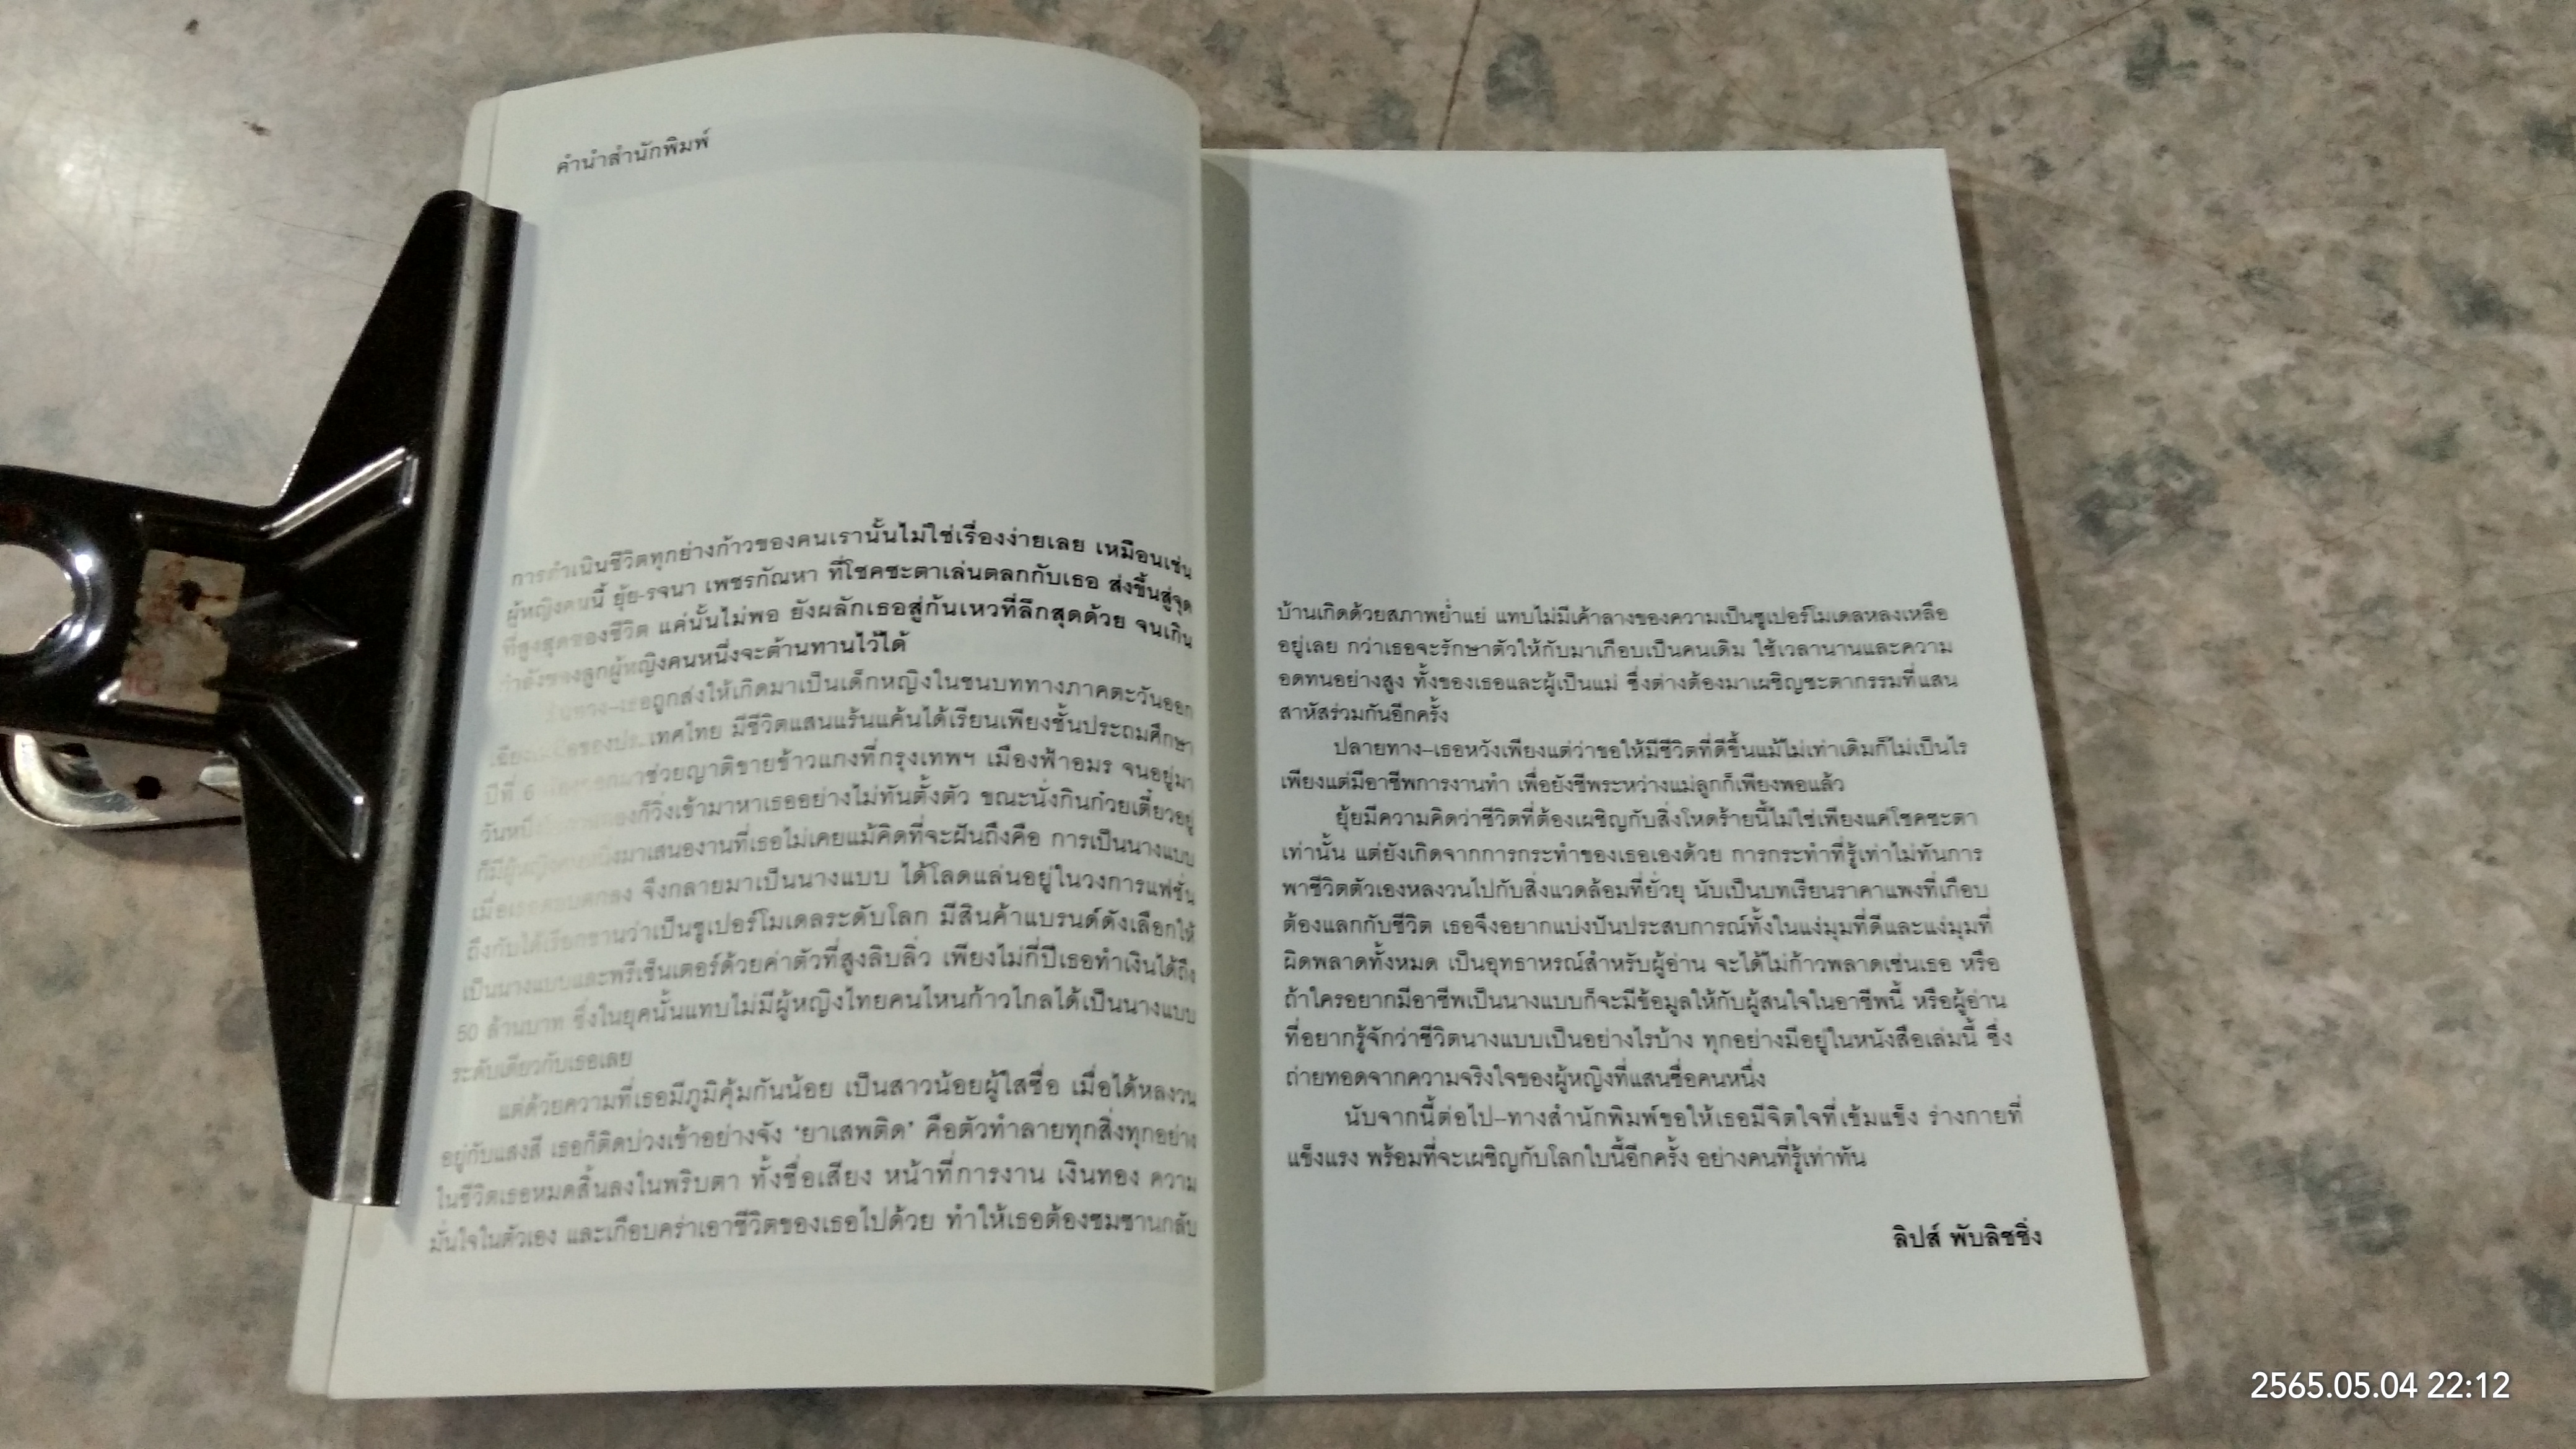 คำนำสำนักพิมพ์
การดำเนินชีวิตทุกย่างก้าวของคนเรานั้นไม่ใช่เรื่องง่ายเลย เหมือนเช่น
ผู้หญิงคนนี้ ยุ้ย-รจนา เพชรกัณหา ที่โชคชะตาเล่นตลกกับเธอ ส่งขึ้นสู่จุด
ที่สูงสุดของชีวิต แค่นั้นไม่พอ ยังผลักเธอสู่ก้นเหวที่ลึกสุดด้วย จนเกิน
กำลังของลูกผู้หญิงคนหนึ่งจะต้านทานไว้ได้
เธอถูกส่งให้เกิดมาเป็นเด็กหญิงในชนบททางภาคตะวันออก
เทศไทย มีชีวิตแสนแร้นแค้นได้เรียนเพียงชั้นประถมศึกษา
ปีที่ 6 มาช่วยญาติขายข้าวแกงที่กรุงเทพฯ เมืองฟ้าอมร จนอยู่มา
ก็วิ่งเข้ามาหาเธออย่างไม่ทันตั้งตัว ขณะนั่งกินก๋วยเตี๋ยวอยู่
ก็มีผู้หญิง มาเสนองานที่เธอไม่เคยแม้คิดที่จะฝันถึงคือ การเป็นนางแบบ
เมื่อเธอตอบตกลง จึงกลายมาเป็นนางแบบ ได้โลดแล่นอยู่ในวงการแฟชั่น
ถึงกับได้เรียกขานว่าเป็นซูเปอร์โมเดลระดับโลก มีสินค้าแบรนด์ดังเลือกให้
เป็นนางแบบและพรีเซ็นเตอร์ด้วยค่าตัวที่สูงลิบลิ่ว เพียงไม่กี่ปีเธอทำเงินได้ถึง
50 ล้านบาท ซึ่งในยุคนั้นแทบไม่มีผู้หญิงไทยคนไหนก้าวไกลได้เป็นนางแบบ
ระดับเดียวกับเธอเลย
แต่ด้วยความที่เธอมีภูมิคุ้มกันน้อย เป็นสาวน้อยผู้ใสซื่อ เมื่อได้หลงวน
อยู่กับแสงสี เธอก็ติดบ่วงเข้าอย่างจัง ‘ยาเสพติด’ คือตัวทำลายทุกสิ่งทุกอย่าง
ในชีวิตเธอหมดสิ้นลงในพริบตา ทั้งชื่อเสียง หน้าที่การงาน เงินทอง ความ
มั่นใจในตัวเอง และเกือบคร่าเอาชีวิตของเธอไปด้วย ทำให้เธอต้องซมซานกลับ
บ้านเกิดด้วยสภาพย่ำแย่ แทบไม่มีเค้าลางของความเป็นซูเปอร์โมเดลหลงเหลือ
อยู่เลย กว่าเธอจะรักษาตัวให้กลับมาเกือบเป็นคนเดิม ใช้เวลานานและความ
อดทนอย่างสูง ทั้งของเธอและผู้เป็นแม่ ซึ่งต่างต้องมาเผชิญชะตากรรมที่แสน
สาหัสร่วมกันอีกครั้ง
ปลายทาง–เธอหวังเพียงแต่ว่าขอให้มีชีวิตที่ดีขึ้นแม้ไม่เท่าเดิมก็ไม่เป็นไร
เพียงแต่มีอาชีพการงานทำ เพื่อยังชีพระหว่างแม่ลูกก็เพียงพอแล้ว
ยุ้ยมีความคิดว่าชีวิตที่ต้องเผชิญกับสิ่งโหดร้ายนี้ไม่ใช่เพียงแค่โชคชะตา
เท่านั้น แต่ยังเกิดจากการกระทำของเธอเองด้วย การกระทำที่รู้เท่าไม่ทันการ
พาชีวิตตัวเองหลงวนไปกับสิ่งแวดล้อมที่ยั่วยุ นับเป็นบทเรียนราคาแพงที่เกือบ
ต้องแลกกับชีวิต เธอจึงอยากแบ่งปันประสบการณ์ทั้งในแง่มุมที่ดีและแง่มุมที่
ผิดพลาดทั้งหมด เป็นอุทธาหรณ์สำหรับผู้อ่าน จะได้ไม่ก้าวพลาดเช่นเธอ หรือ
ถ้าใครอยากมีอาชีพเป็นนางแบบก็จะมีข้อมูลให้กับผู้สนใจในอาชีพนี้ หรือผู้อ่าน
ที่อยากรู้จักว่าชีวิตนางแบบเป็นอย่างไรบ้าง ทุกอย่างมีอยู่ในหนังสือเล่มนี้ ซึ่ง
ถ่ายทอดจากความจริงใจของผู้หญิงที่แสนซื่อคนหนึ่ง
นับจากนี้ต่อไป–ทางสำนักพิมพ์ขอให้เธอมีจิตใจที่เข้มแข็ง ร่างกายที่
แข็งแรง พร้อมที่จะเผชิญกับโลกใบนี้อีกครั้ง อย่างคนที่รู้เท่าทัน
ลิปส์ พับลิชชิ่ง
2565.05.04 22:12